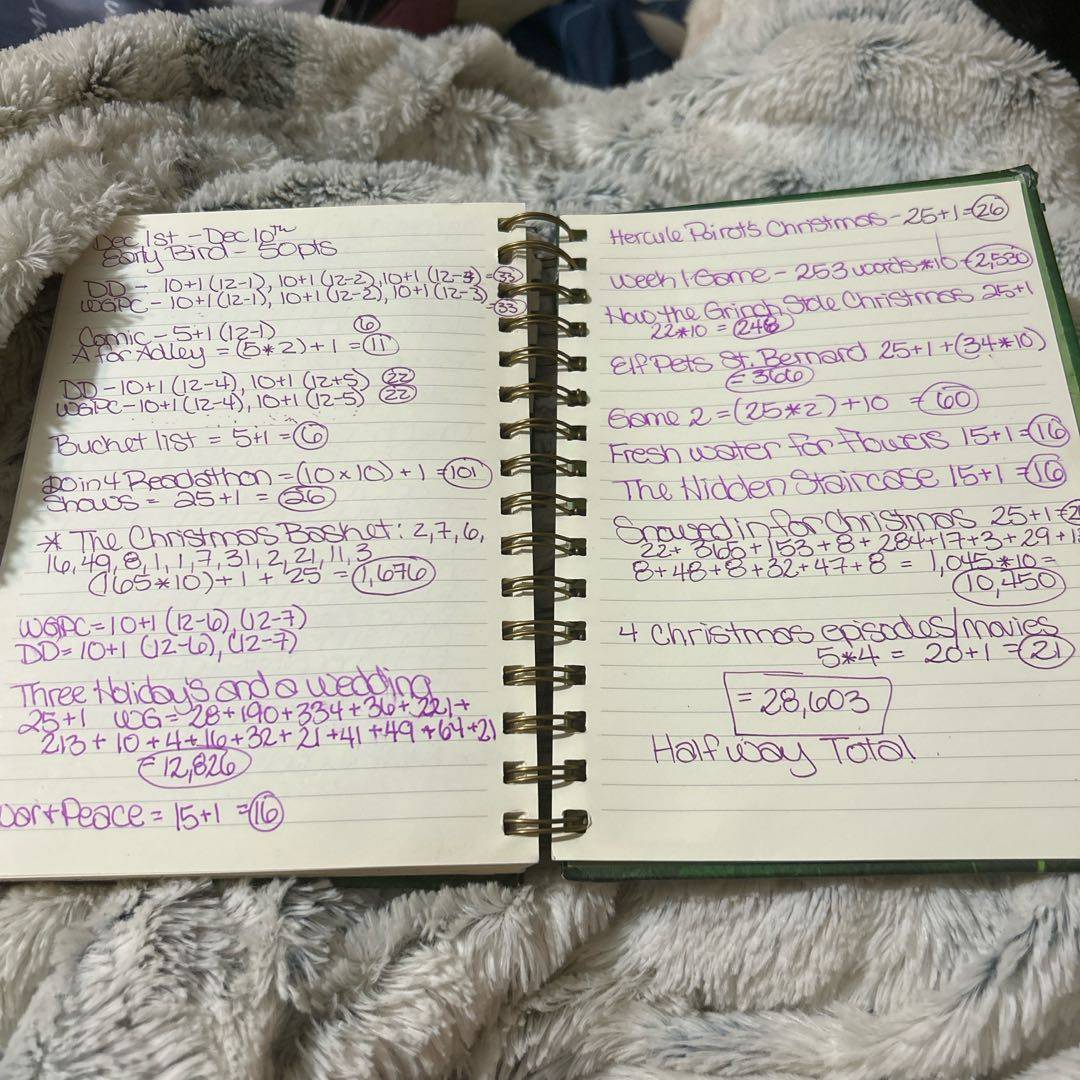 Dec 1st - Dec 10th
Early Bird - 50pts
DD - 10+1 (12-1), 10+1 (12-2), 10+1 (12-3) = 33
WGPC - 10+1 (12-1), 10+1 (12-2), 10+1 (12-3) = 33
Comic - 5+1 (12-1) 6
A for Adley = (5*2) + 1 = 11
DD - 10+1 (12-4), 10+1 (12+5) 22
WGPC - 10+1 (12-4), 10+1 (12-5) 22
Bucket list = 5+1 = 6
20in4 Readathon = (10x10) + 1 = 101
Shows = 25+1 = 26
* The Christmas Basket: 2, 7, 6,
16, 49, 8, 1, 1, 7, 31, 2, 21, 11, 3
(165*10) + 1 + 25 = 1,676
WGPC = 10+1 (12-6), (12-7)
DD = 10+1 (12-6), (12-7)
Three Holiday's and a wedding
25+1 WG = 28+190+334+36+221+
213 + 10 + 4 + 16 + 32 + 21 + 41 + 49 + 64 + 21
= 12,826
War + Peace = 15+1 = 16
Hercule Poirot's Christmas - 25+1 = 26
Week 1 Game - 253 words * 10 = 2,530
How the Grinch Stole Christmas 25+1
22*10 = 246
Elf Pets St. Bernard 25+1 + (34*10)
= 366
Game 2 = (25*2) + 10 = 60
Fresh water for Flowers 15+1 = 16
The Hidden Staircase 15+1 = 16
Snowed in for Christmas 25+1 =
22 + 365 + 153 + 8 + 284 + 17 + 3 + 29 +
8 + 48 + 8 + 32 + 47 + 8 = 1,045 * 10 =
10,450
4 Christmas episodes/movies
5*4 = 20+1 = 21
= 28,603
Halfway Total